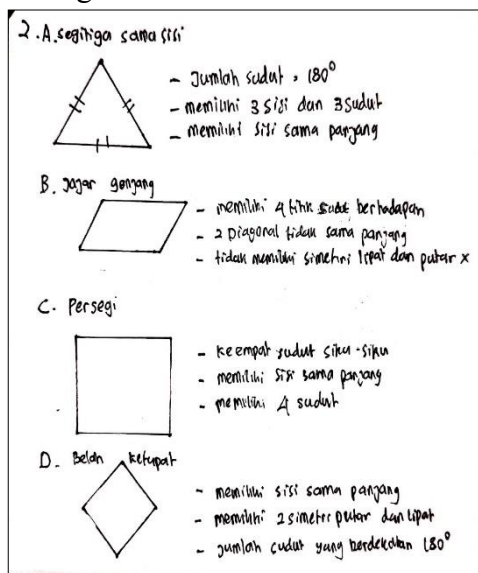 2. A. segitiga sama sisi
- Jumlah sudut = 180°
- memiliki 3 sisi dan 3 sudut
- memiliki sisi sama panjang
B. Jajar genjang
- memiliki 4 titik sudut berhadapan
- 2 Diagonal tidak sama panjang
- tidak memiliki simetri lipat dan putar x
C. Persegi
- keempat sudut siku-siku
- memiliki sisi sama panjang
- memiliki 4 sudut
D. Belah ketupat
- memiliki sisi sama panjang
- memiliki 2 simetri putar dan lipat
- jumlah sudut yang berdekatan 180°